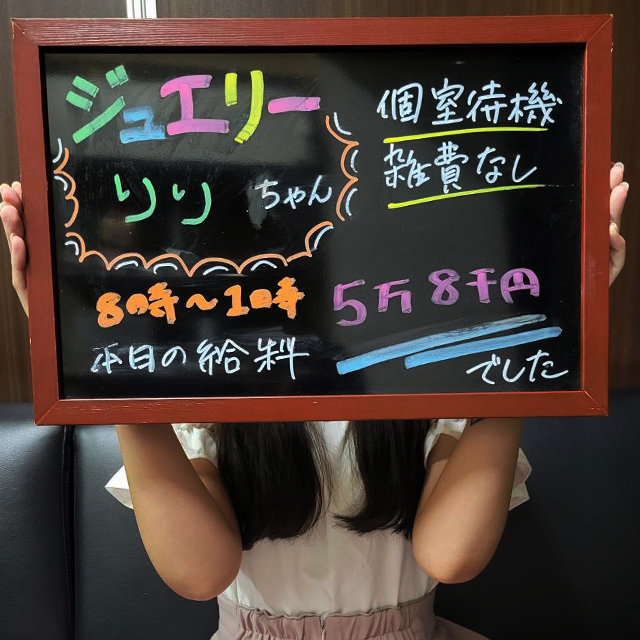 ジュエリー
りりちゃん
8時〜1時
本日の給料
個室待機
雑費なし
5万8千円
でした